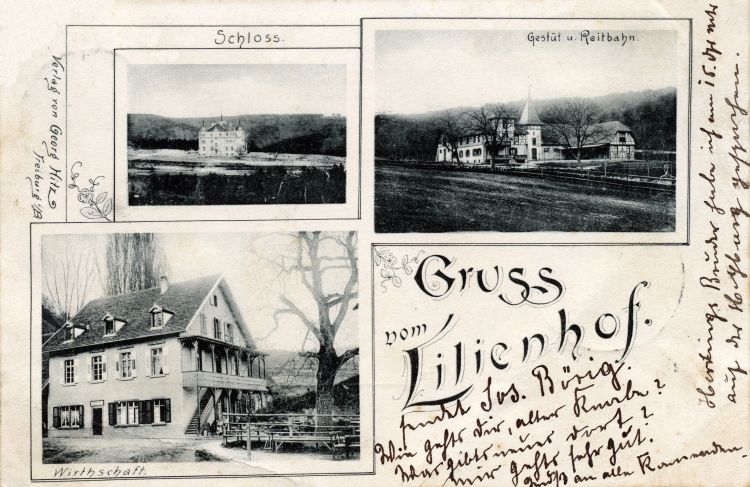 Schloss.
Gestüt u. Reitbahn.
Verlag von Georg Hitz
Freiburg i/B
Gruss
vom
Lilienhof.
Wirthschaft.
sendet Jos. Börig.
Wie gehts Dir, alter Knabe?
Was gibts neues dort?
Mir gehts sehr gut.
Gruß an alle Kameraden.
Bruder habe ich am 15. ds
auf der gesprochen.